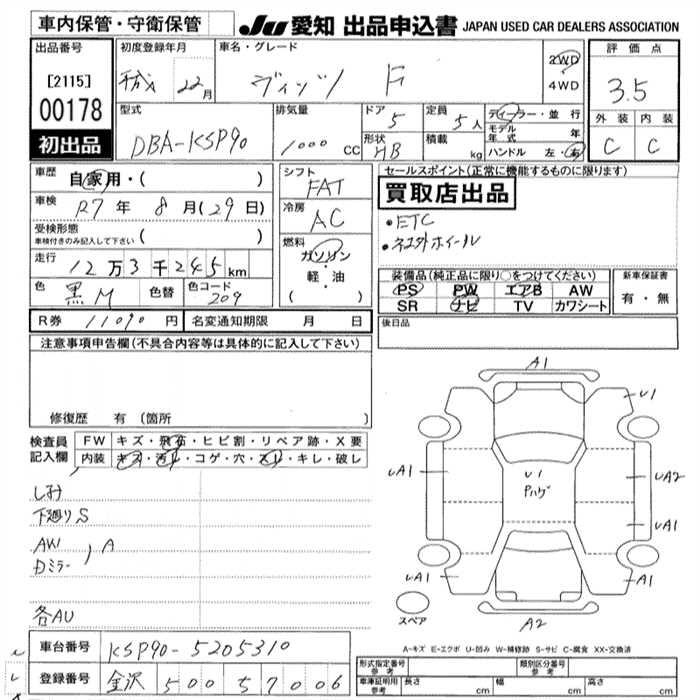 車内保管・守衛保管
JU 愛知 出品申込書 JAPAN USED CAR DEALERS ASSOCIATION
出品番号
[2115]
00178
初出品
初度登録年月
平成 22月
車名・グレード
ヴィッツ F
2WD
4WD
評価点
3.5
外装 内装
C C
型式
DBA-KSP90
排気量
1000 CC
ドア 5
形状 HB
定員 5人
積載 kg
ディーラー・並行
モデル年式 年
ハンドル 左・右
車歴 自家用・( )
車検 R7年 8月(29日)
受検形態
車検付きのみ記入して下さい ( )
走行 12万3千245km
色 黒M 色替 色コード 209
シフト
FAT
冷房
AC
燃料
ガソリン
軽・油
( )
セールスポイント(正常に機能するものに限ります)
買取店出品
・ETC
装備品(純正品に限り○をつけてください)
PS PW エアB AW
SR ナビ TV カワシート
新車保証書
有・無
R券 11090円 名変通知期限 月 日
後日品
注意事項申告欄(不具合内容等は具体的に記入して下さい)
修復歴 有(箇所 )
検査員記入欄
FW キズ・飛石・ヒビ割・リペア跡・X要
内装 キズ・汚れ・コゲ・穴・スレ・キレ・破レ
シミ
下廻りS
AW
Dミラー ) A
各AU
A1
U1
UA1
U1
Pハゲ
UA2
UA1
UA1
A1
A2
スペア
A-キズ E-エクボ U-凹み W-補修跡 S-サビ C-腐食 XX-交換済
車台番号 KSP90-5205310
登録番号 金沢 500 57006
形式指定番号 参考
類別区分番号 参考
車庫証明用 参考 長さ cm 幅 cm 高さ cm